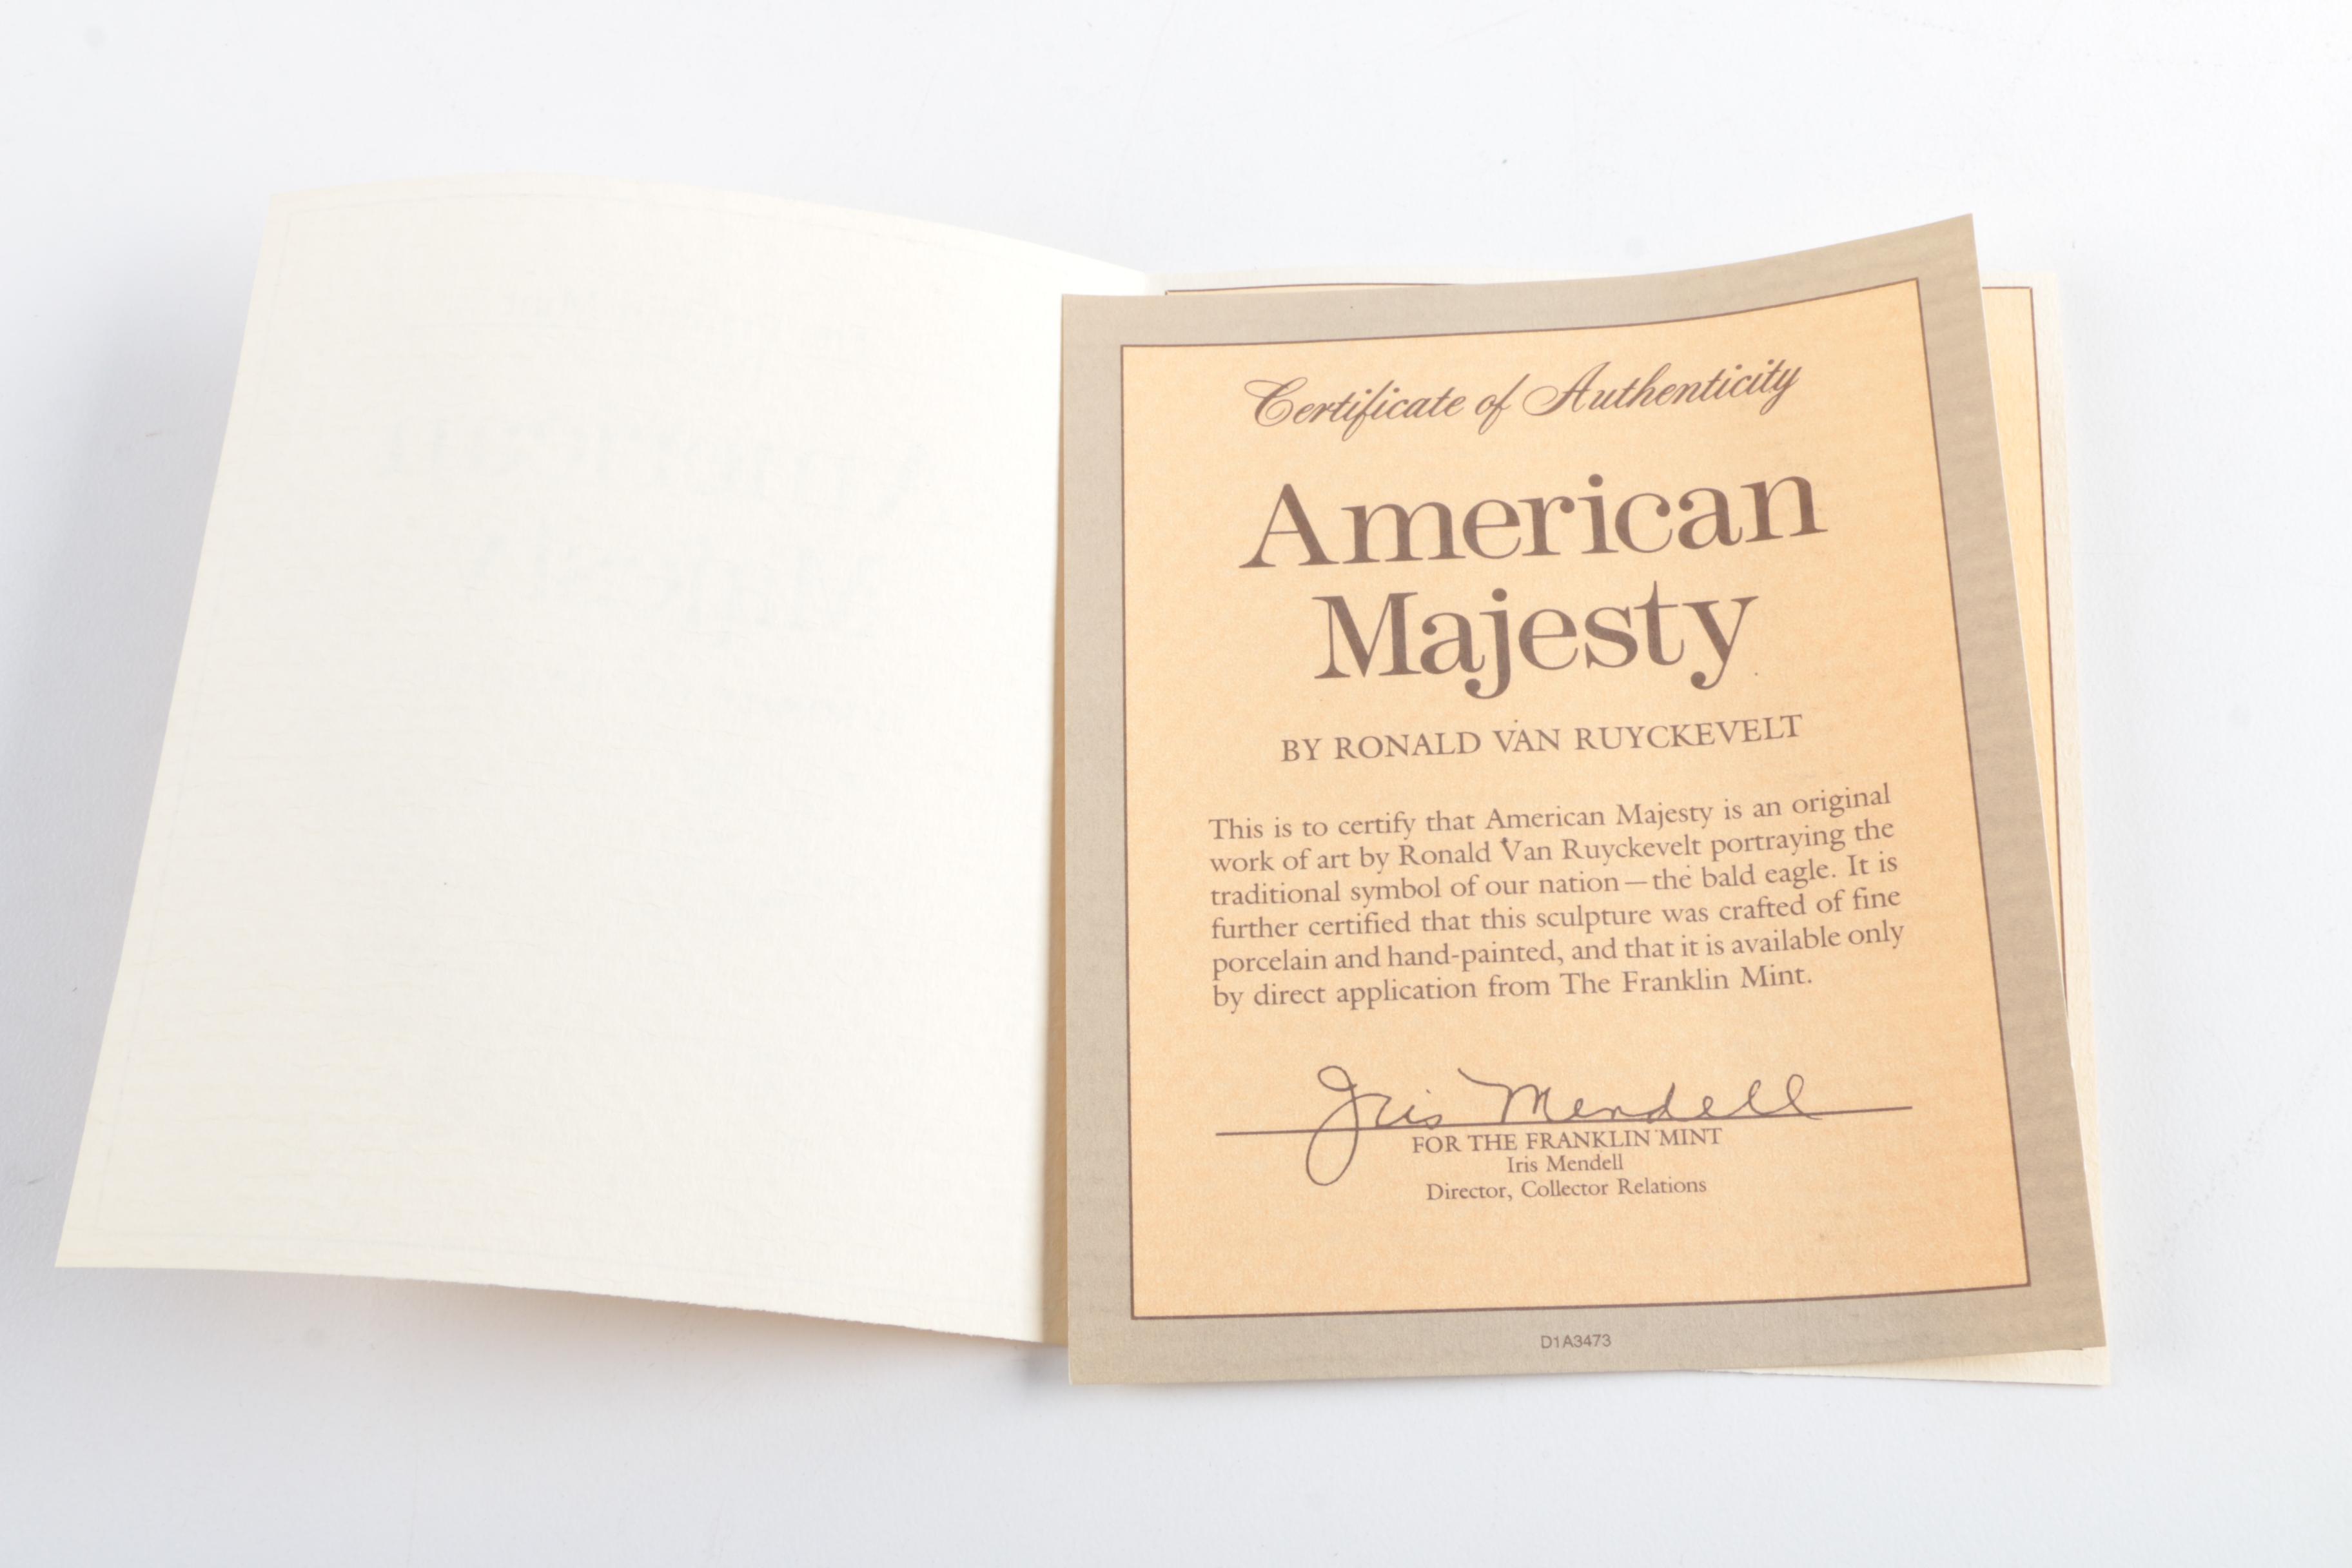 Certificate of Authenticity
American
Majesty
BY RONALD VAN RUYCKEVELT
This is to certify that American Majesty is an original
work of art by Ronald Van Ruyckevelt portraying the
traditional symbol of our nation—the bald eagle. It is
further certified that this sculpture was crafted of fine
porcelain and hand-painted, and that it is available only
by direct application from The Franklin Mint.
Iris Mendell
FOR THE FRANKLIN MINT
Iris Mendell
Director, Collector Relations
D1A3473